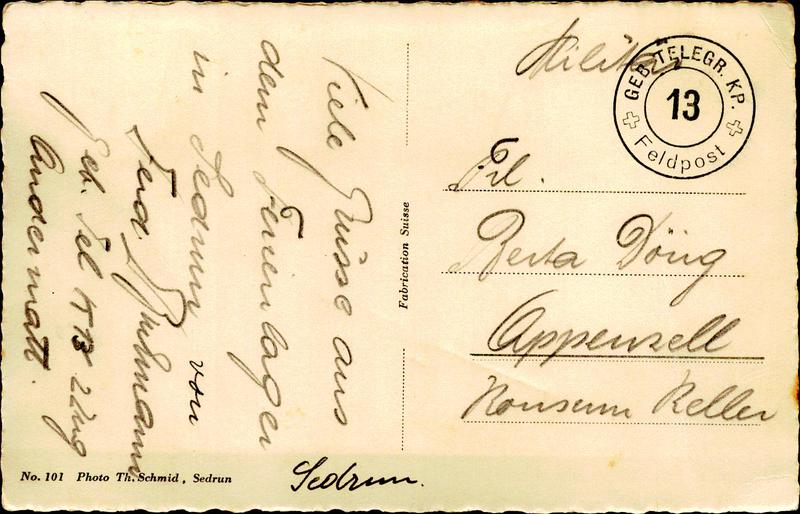 Viele Grüsse aus
dem Ferienlager
in Sedrun von
Ferd.
Geb. Tel Kp 13 2 Zug
Andermatt.
No. 101 Photo Th. Schmid, Sedrun
Sedrun.
Fabrication Suisse
Militär
GEB. TELEGR. KP.
13
Feldpost
Frl.
Berta Dörig
Appenzell
Konsum Keller